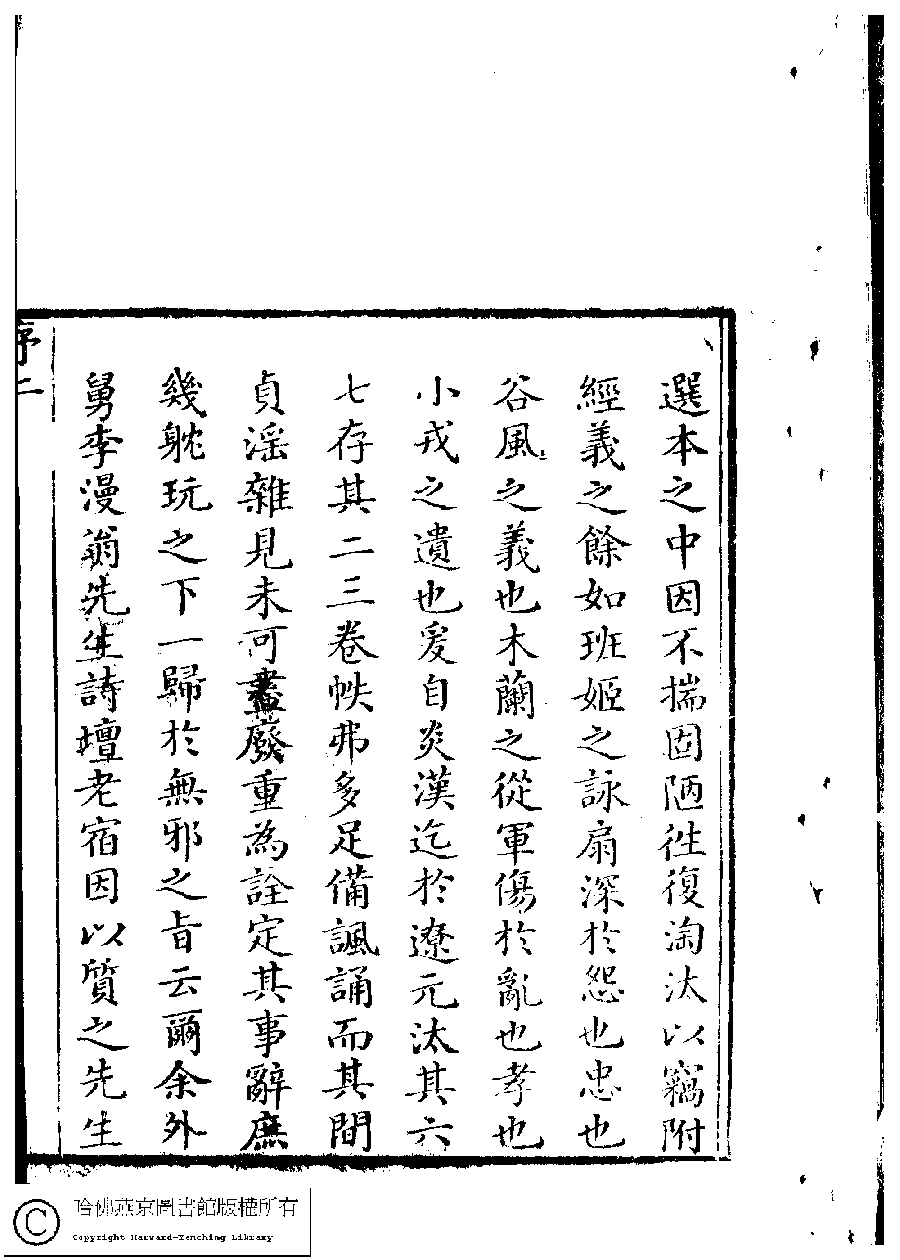 選本之中因不揣固陋徃復淘汰以竊附
經義之餘如班姬之詠扇深於怨也忠也
谷風之義也木蘭之從軍傷於亂也孝也
小戎之遺也爰自炎漢迄於遼元汰其六
七存其二三卷帙弗多足備諷誦而其間
貞淫雜見未可盡廢重為詮定其事辭庶
幾躭玩之下一歸於無邪之旨云爾余外
舅李漫翁先生詩壇老宿因以質之先生
序二
哈佛燕京圖書館版權所有
Copyright Harvard-Yenching Library